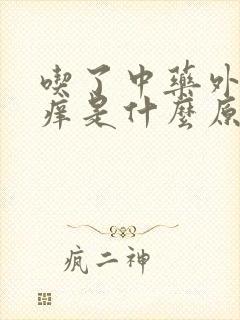 喫了中藥外
痒是什麼原
疯二神